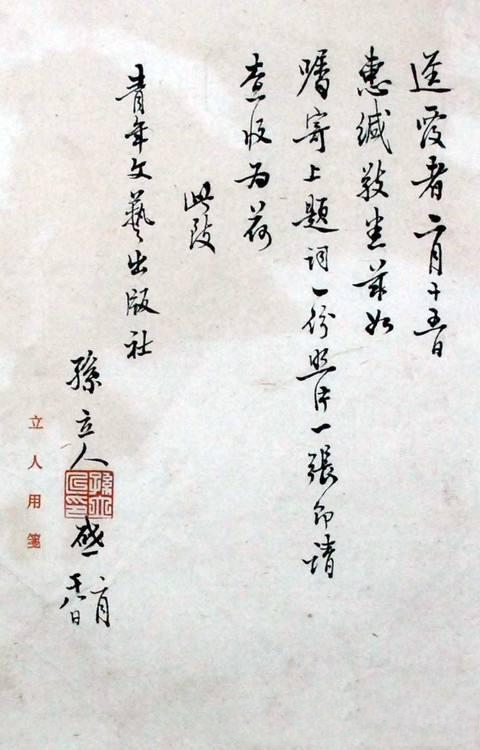 逕覆者二月十五日
惠緘敬悉茲如
囑寄上題詞一份照片一張即請
查收為荷
此致
青年文藝出版社
孫立人
孫立人印
啟
二月
立人用箋